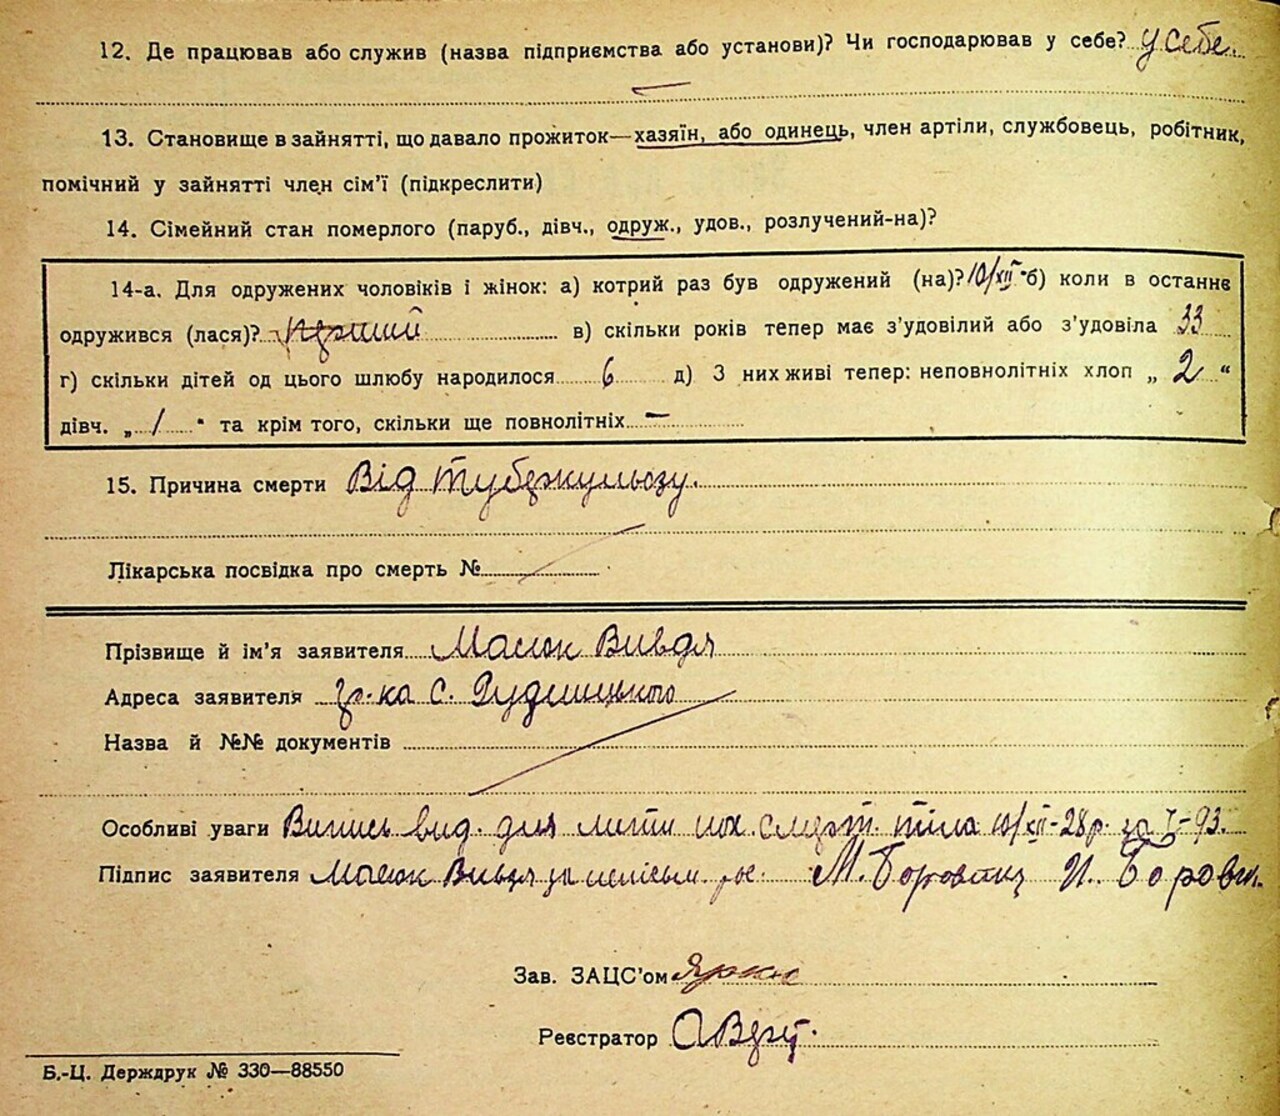 12. Де працював або служив (назва підприємства або установи)? Чи господарював у себе? у себе.
13. Становище в зайнятті, що давало прожиток—хазяїн, або одинець, член артіли, службовець, робітник,
помічний у зайнятті член сім'ї (підкреслити)
14. Сімейний стан померлого (паруб., дівч., одруж., удов., розлучений-на)?
14-а. Для одружених чоловіків і жінок: а) котрий раз був одружений (на)? 10/XII б) коли в останнє
одружився (лася)? перший в) скільки років тепер має з'удовілий або з'удовіла 33
г) скільки дітей од цього шлюбу народилося 6 д) З них живі тепер: неповнолітніх хлоп „ 2 “
дівч. „ 1 “ та крім того, скільки ще повнолітніх —
15. Причина смерти Від туберкульозу.
Лікарська посвідка про смерть №
Прізвище й ім'я заявителя Масюк Вивдя
Адреса заявителя гр-ка с. Рудницького
Назва й №№ документів
Особливі уваги Випись вид. для тіла 10/XII-28р. за № 93.
Підпис заявителя Масюк Вивдя за М. Боровик И. Боровик
Зав. ЗАЦС'ом
Реєстратор
Б.-Ц. Держдрук № 330—88550